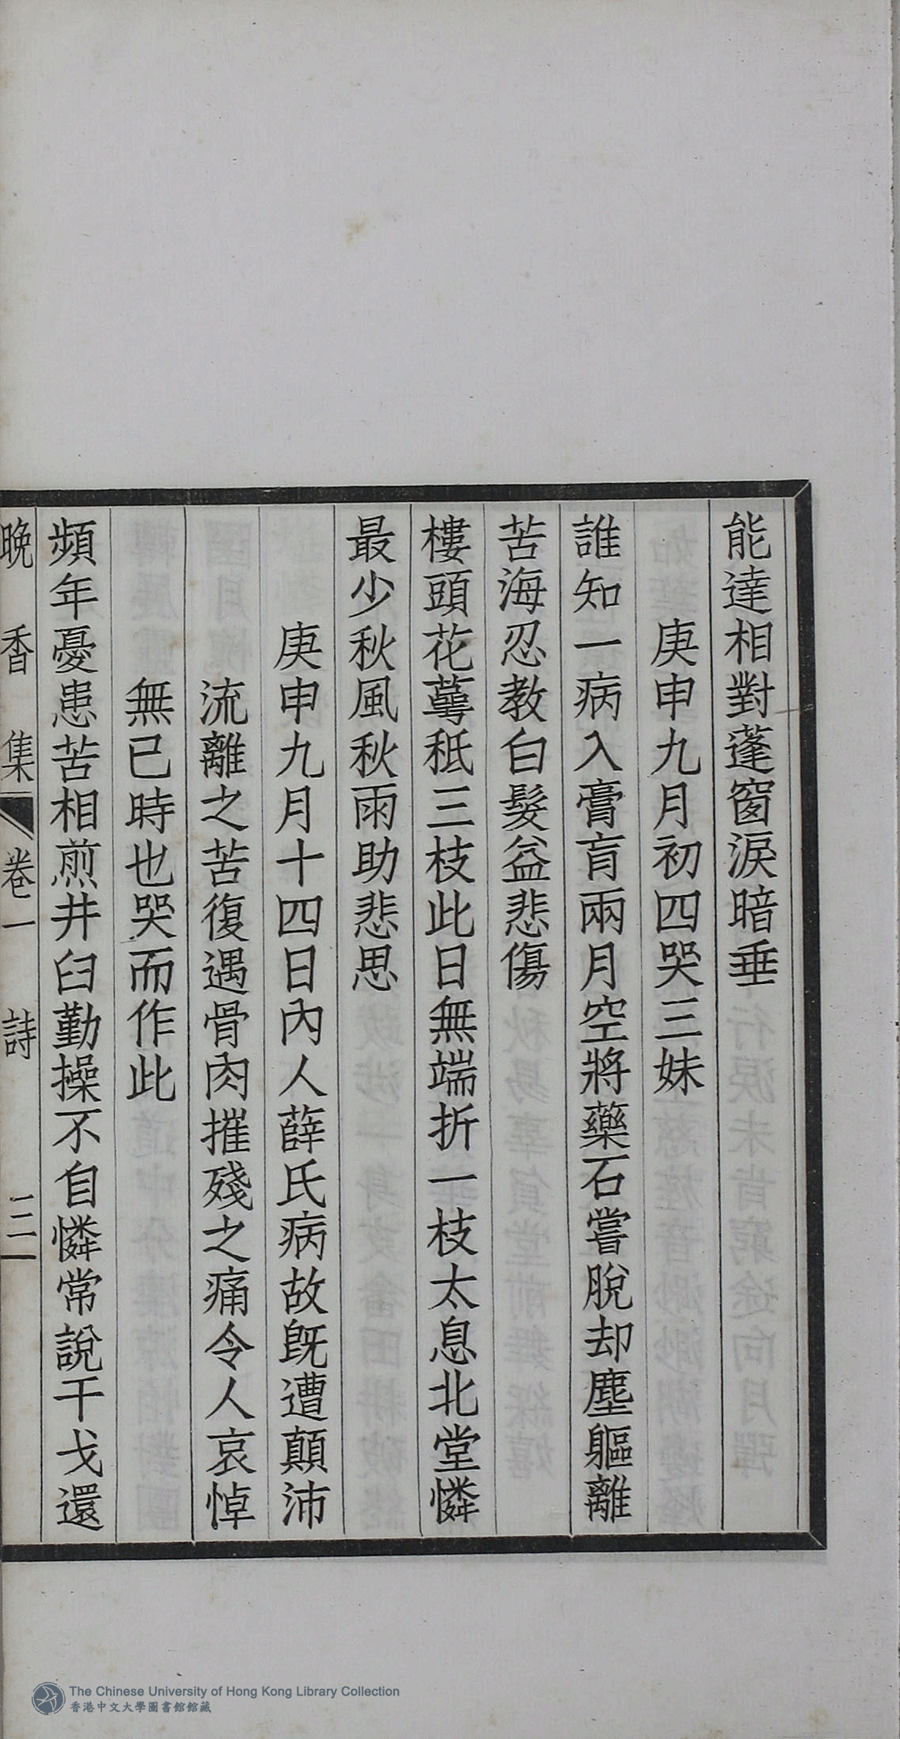 能達相對蓬窗淚暗垂
庚申九月初四哭三妹
誰知一病入膏肓兩月空將藥石嘗脫却塵軀離
苦海忍教白髮益悲傷
樓頭花萼秪三枝此日無端折一枝太息北堂憐
最少秋風秋雨助悲思
庚申九月十四日內人薛氏病故旣遭顛沛
流離之苦復遇骨肉摧殘之痛令人哀悼
無已時也哭而作此
頻年憂患苦相煎井臼勤操不自憐常說干戈還
晚香集 卷一 詩 三
The Chinese University of Hong Kong Library Collection
香港中文大學圖書館館藏